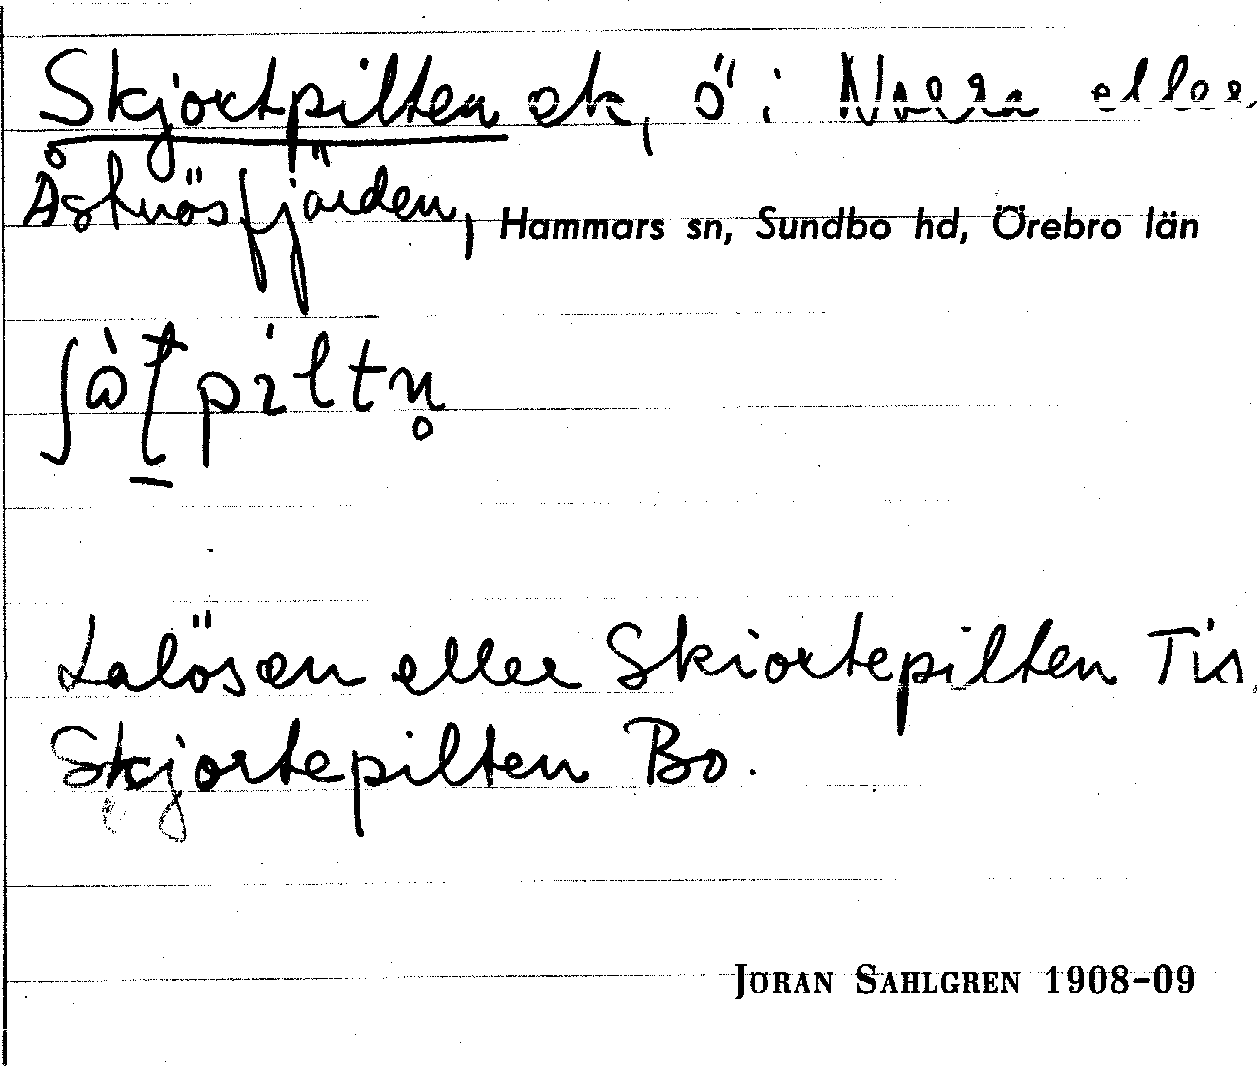 Skjortpilten ek, ö i Norra eller
Åstnösfjärden, Hammars sn, Sundbo hd, Örebro län
Lalösen eller Skiortepilten Tis.
Skjortepilten Bo.
JÖRAN SAHLGREN 1908–09